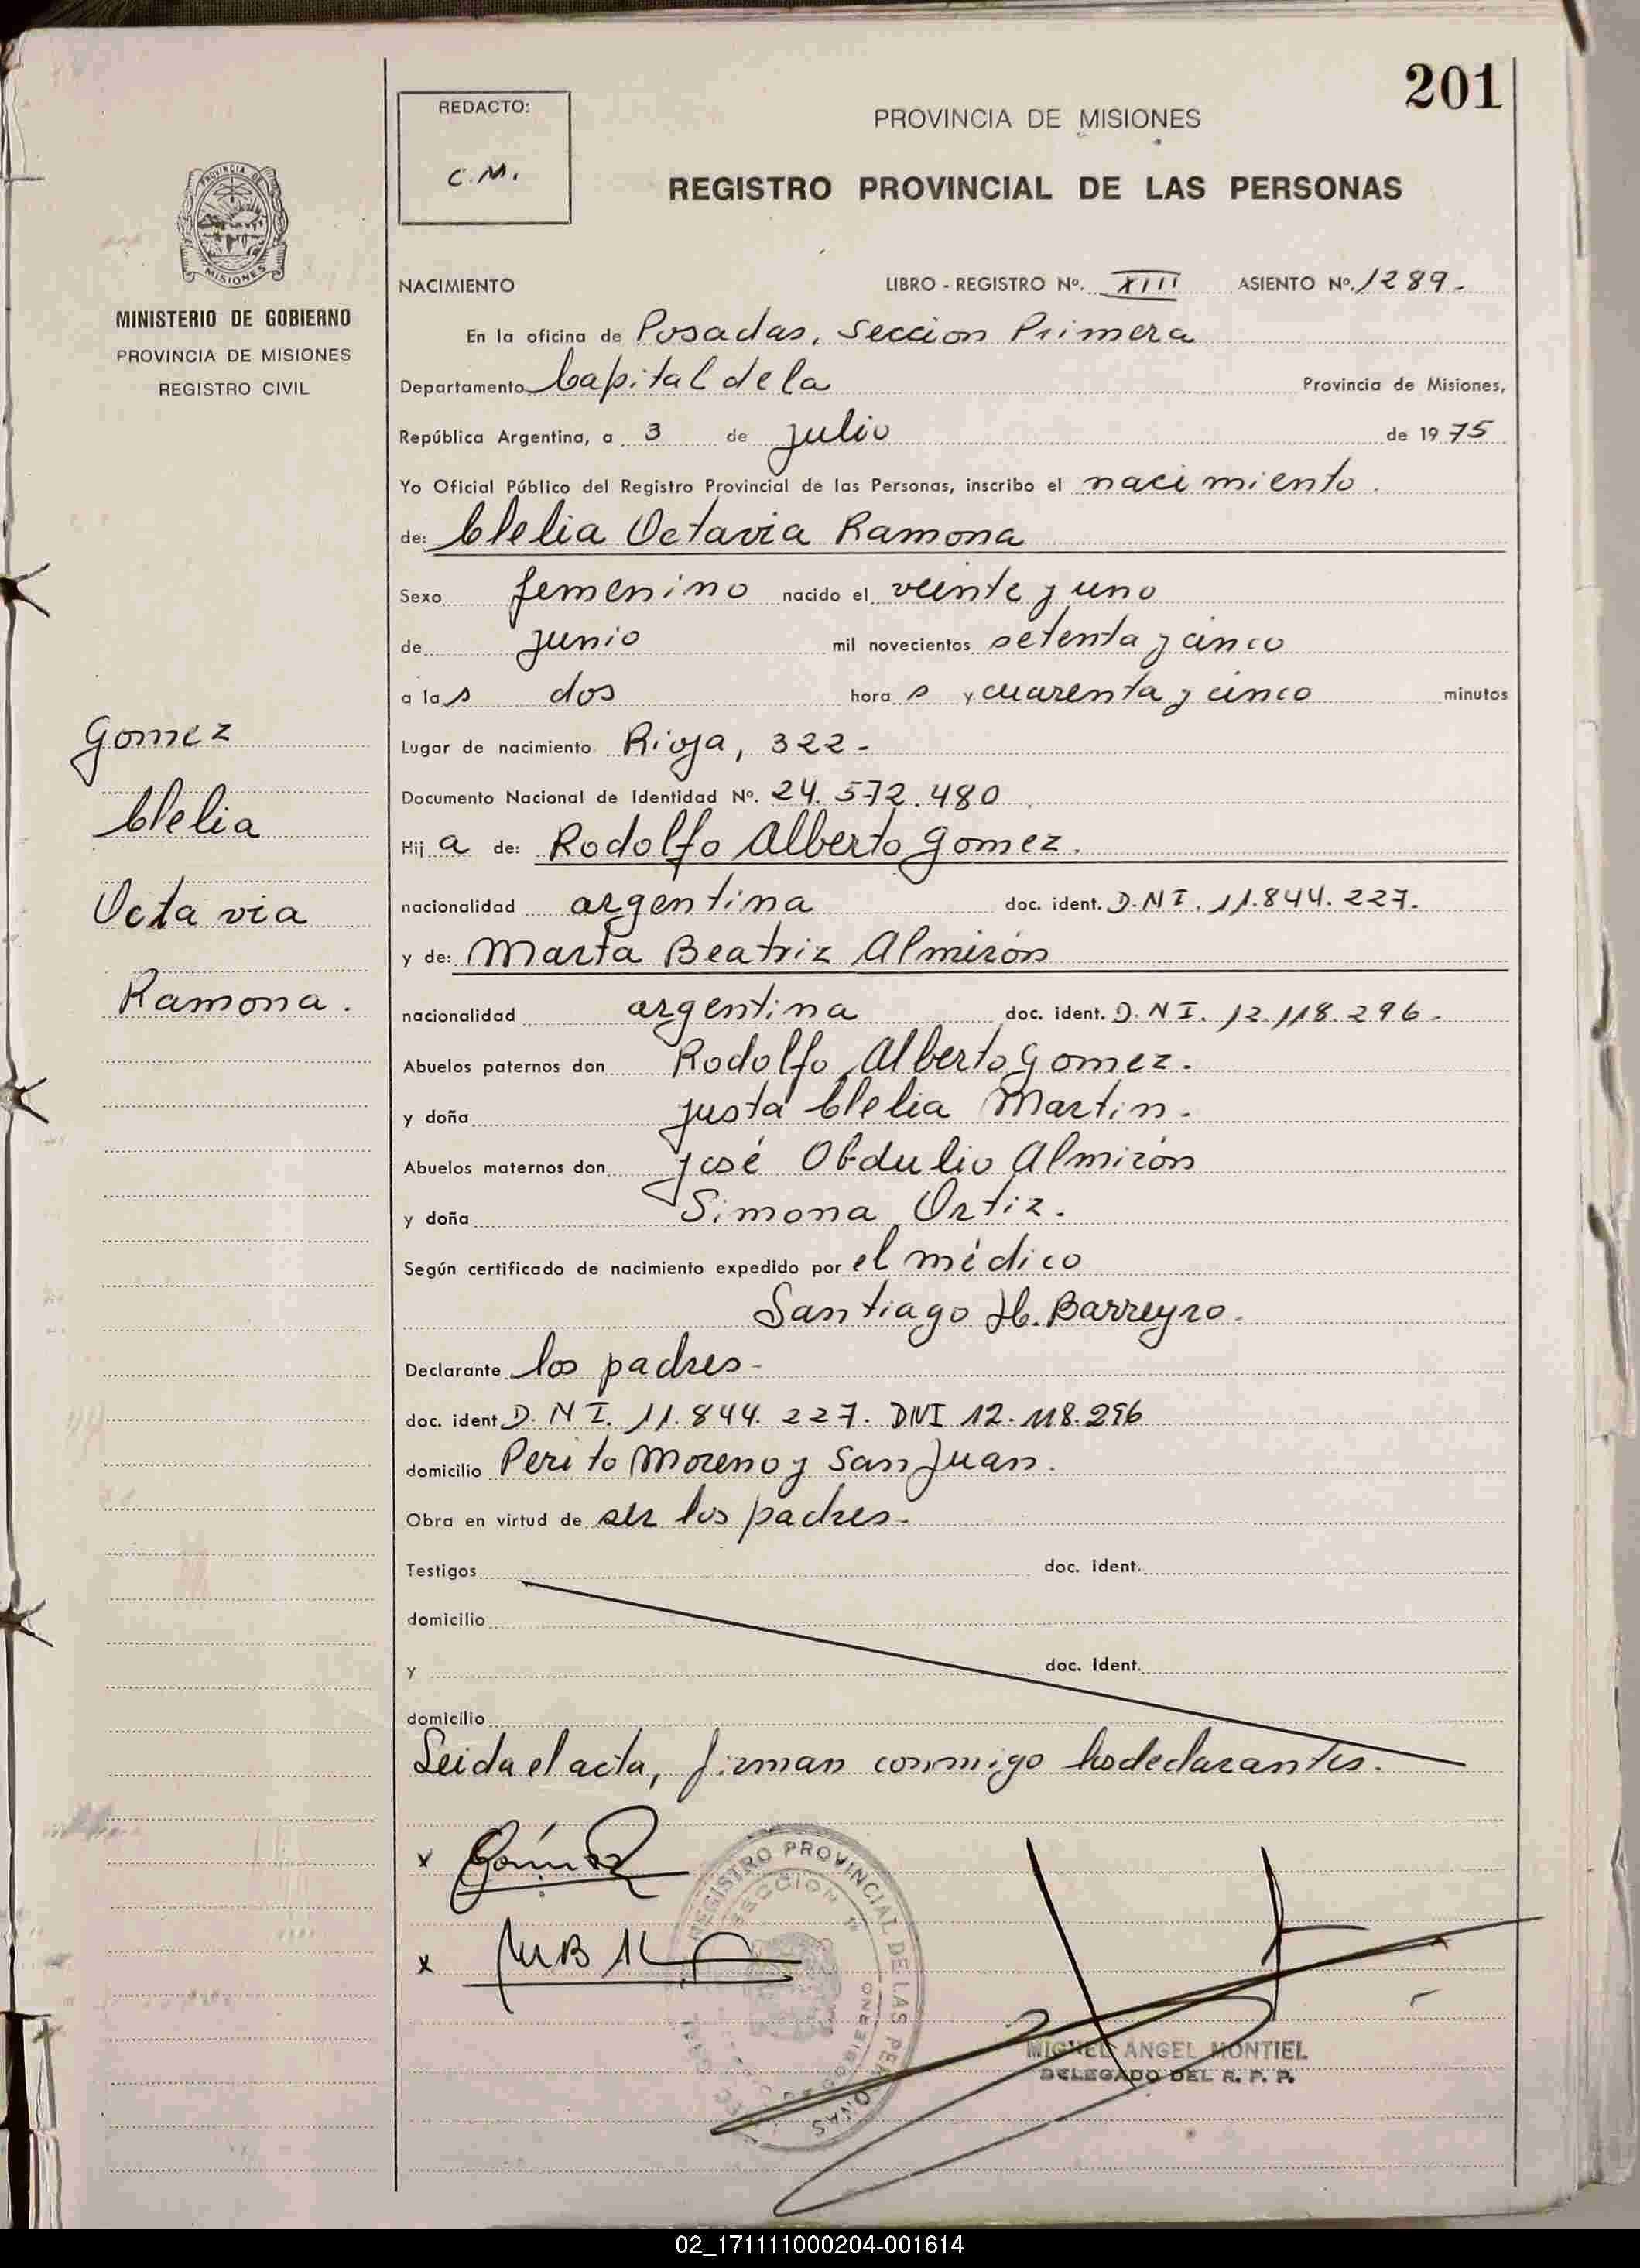 201
REDACTO:
C.M.
PROVINCIA DE MISIONES
REGISTRO PROVINCIAL DE LAS PERSONAS
PROVINCIA DE
MISIONES
MINISTERIO DE GOBIERNO
PROVINCIA DE MISIONES
REGISTRO CIVIL
NACIMIENTO LIBRO - REGISTRO Nº. XIII ASIENTO Nº. 1289.
En la oficina de Posadas, Seccion Primera
Departamento Capital de la Provincia de Misiones,
República Argentina, a 3 de julio de 1975
Yo Oficial Público del Registro Provincial de las Personas, inscribo el nacimiento.
de: Clelia Octavia Ramona
Sexo femenino nacido el veinte y uno
de junio mil novecientos setenta y cinco
a las dos horas y cuarenta y cinco minutos
Lugar de nacimiento Rioja, 322-
Documento Nacional de Identidad Nº. 24.572.480
Hija de: Rodolfo Alberto Gomez.
nacionalidad argentina doc. ident. D.N I. 11.844.227.
y de: Marta Beatriz Almirón
nacionalidad argentina doc. ident. D. N I. 12.118.296.
Abuelos paternos don Rodolfo Alberto Gomez.
y doña justa Clelia Martin.
Abuelos maternos don José Obdulio Almirón
y doña Simona Ortiz.
Según certificado de nacimiento expedido por el médico
Santiago H. Barreyro.
Declarante los padres-
doc. ident D. N I. 11.844.227. DNI 12.118.296
domicilio Perito Moreno y San Juan.
Obra en virtud de ser los padres.
Testigos doc. ident.
domicilio
y doc. Ident.
domicilio
Leida el acta, firman conmigo los declarantes.
Gomez
Clelia
Octavia
Ramona.
x Gómez
x
REGISTRO PROVINCIAL DE LAS PERSONAS
SECCION 1ª
GOBIERNO
MIGUEL ANGEL MONTIEL
DELEGADO DEL R. P. P.
02_171111000204-001614